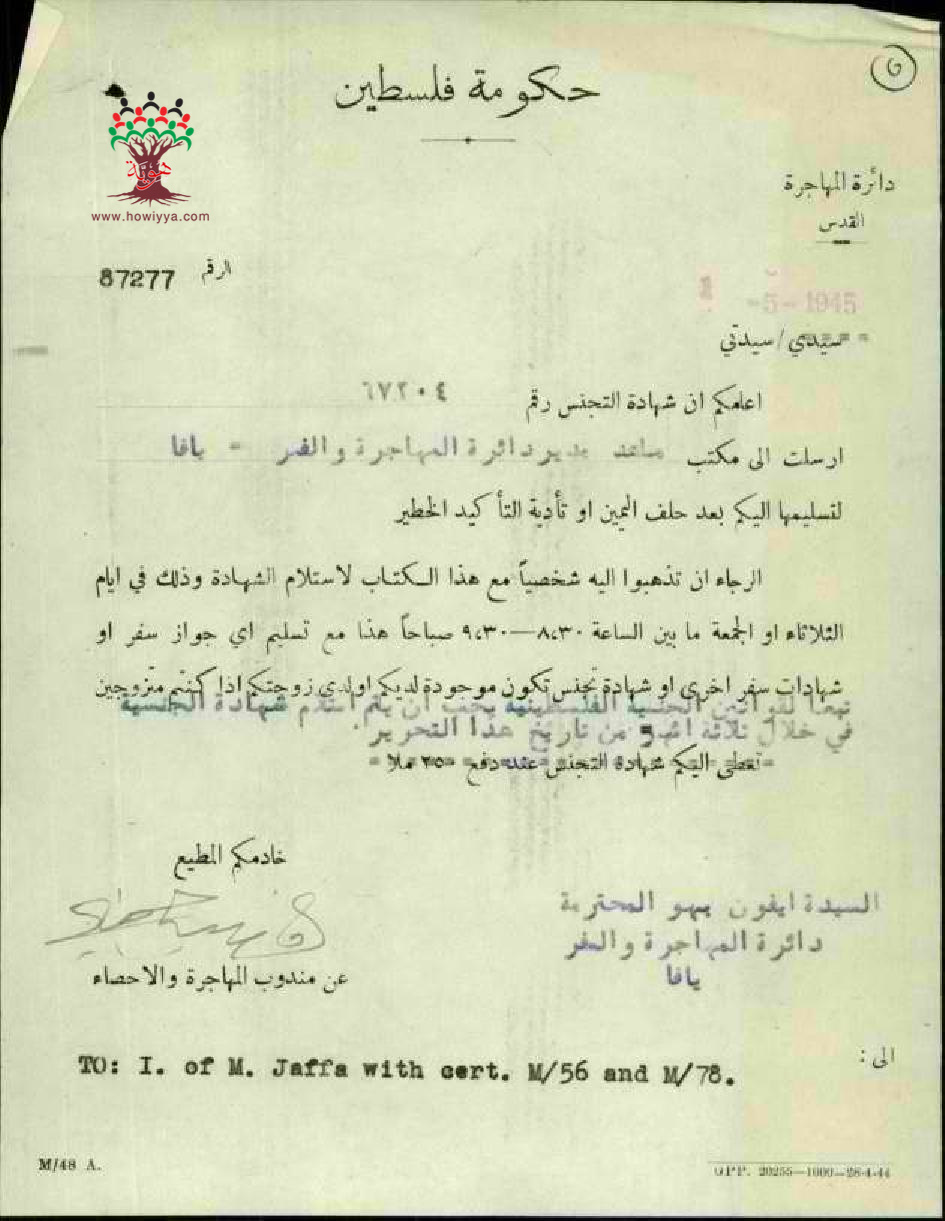 6
حكومة فلسطين
هوية
www.howiyya.com
دائرة المهاجرة
القدس
الرقم 87277
-5-1945
سيدي/سيدتي
اعلمكم ان شهادة التجنس رقم ٦٧٢٠٤
ارسلت الى مكتب مساعد مدير دائرة المهاجرة والسفر - يافا
لتسليمها اليكم بعد حلف اليمين او تأدية التأكيد الخطير
الرجاء ان تذهبوا اليه شخصياً مع هذا الكتاب لاستلام الشهادة وذلك في ايام
الثلاثاء او الجمعة ما بين الساعة ٨،٣٠—٩،٣٠ صباحاً هذا مع تسليم اي جواز سفر او
شهادات سفر اخرى او شهادة تجنس تكون موجودة لديكم او لدى زوجتكم اذا كنتم متزوجين
تبعا لقوانين الجنسية الفلسطينية يجب ان يتم استلام شهادة الجنسية
في خلال ثلاثة اشهر من تاريخ هذا التحرير.
تعطى اليكم شهادة التجنس عند دفع ٢٥٠ ملا
خادمكم المطيع
عن مندوب المهاجرة والاحصاء
السيدة ايفون المحترمة
دائرة المهاجرة والسفر
يافا
الى:
TO: I. of M. Jaffa with cert. M/56 and M/78.
M/48 A.
GPP. 20255—1000—28-4-44